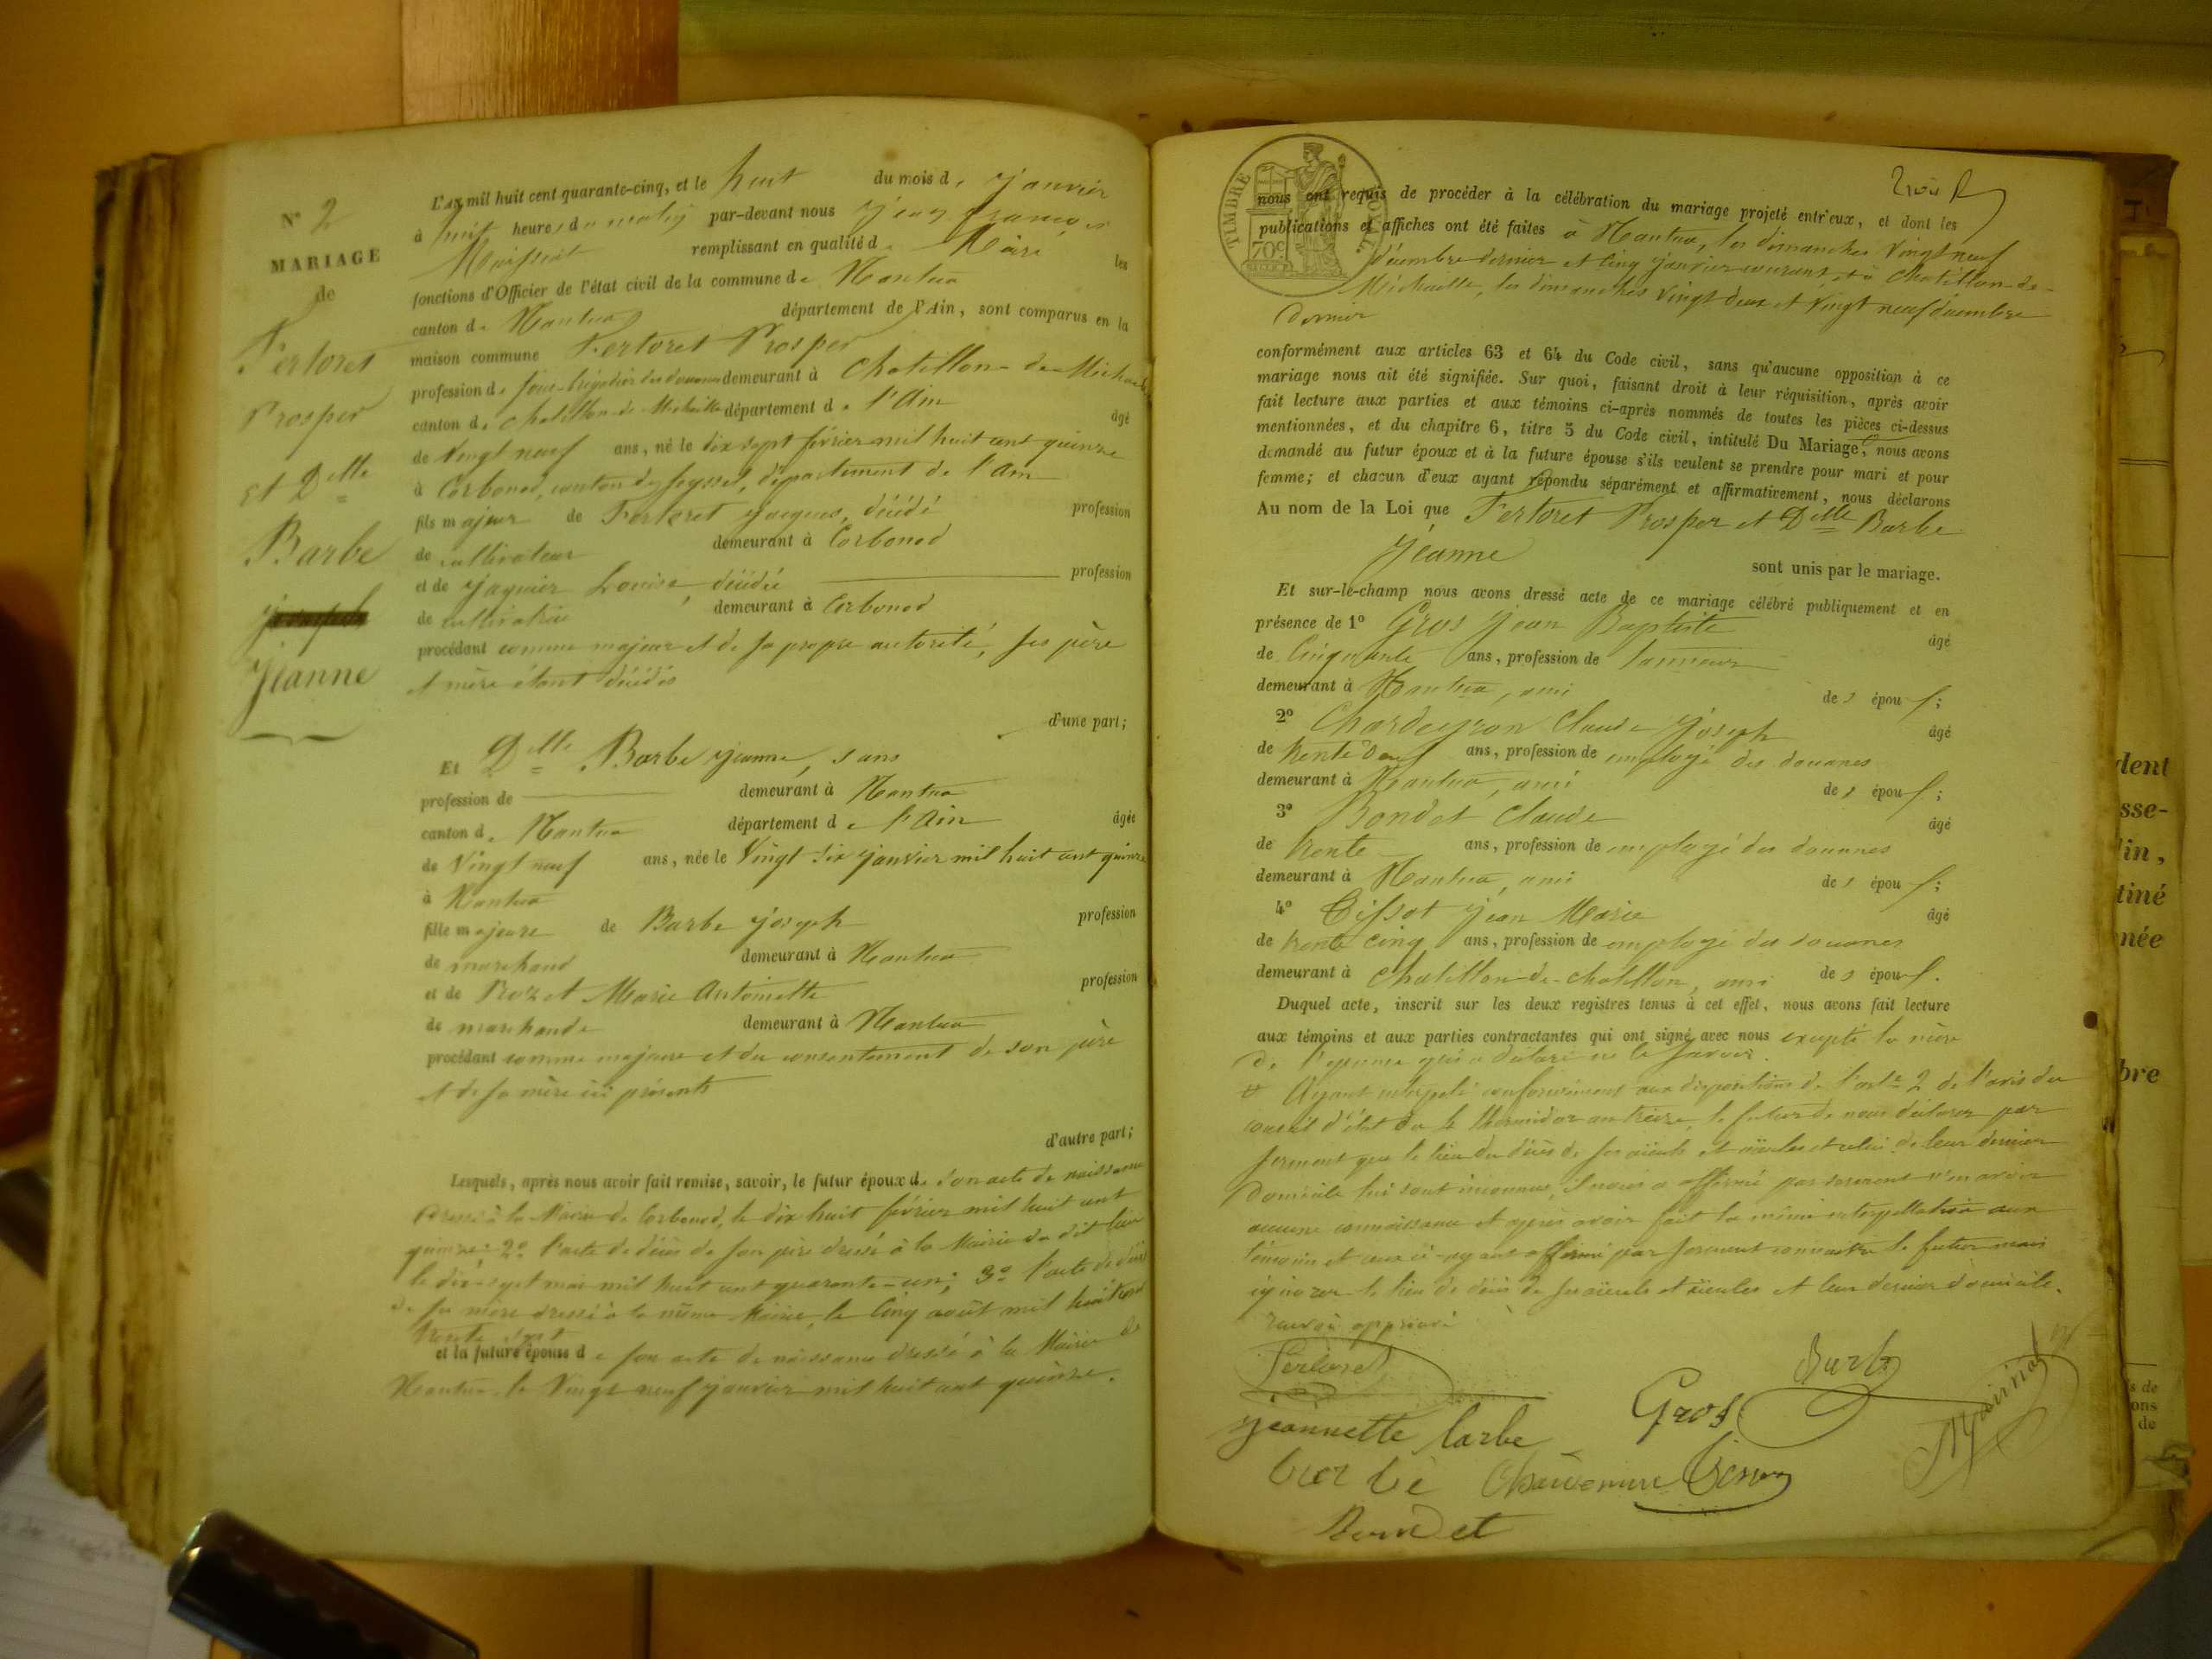 N° 2
MARIAGE
de
Fertoret
Prosper
et Delle
Barbe
Jeanne
L'an mil huit cent quarante-cinq, et le huit du mois de janvier
à huit heures du matin par-devant nous Jean François
remplissant en qualité de Maire les
fonctions d'Officier de l'état civil de la commune de Nantua
canton de Nantua département de l'Ain, sont comparus en la
maison commune Fertoret Prosper
profession de sous-brigadier des douanes demeurant à Chatillon-de-Michaille
canton de Chatillon-de-Michaille département de l'Ain âgé
de Vingt neuf ans, né le dix sept février mil huit cent quinze
à Corbonod, canton de Seyssel, département de l'Ain
fils majeur de Fertoret Jacques, décédé profession
de cultivateur demeurant à Corbonod
et de Jaquier Louise, décédée profession
de cultivatrice demeurant à Corbonod
procédant comme majeur et de sa propre autorité, ses père
et mère étant décédés
d'une part;
Et Delle Barbe Jeanne, sans
profession de demeurant à Nantua
canton de Nantua département de l'Ain âgée
de Vingt neuf ans, née le Vingt six janvier mil huit cent quinze
à Nantua
fille majeure de Barbe Joseph profession
de marchand demeurant à Nantua
et de Marie Antoinette profession
de marchande demeurant à Nantua
procédant comme majeure et du consentement de son père
et de sa mère ici présents
d'autre part;
Lesquels, après nous avoir fait remise, savoir, le futur époux de son acte de naissance
dressé à la Mairie de Corbonod, le dix huit février mil huit cent
quinze; 2° l'acte de décès de son père dressé à la Mairie du dit lieu
le dix-sept mai mil huit cent quarante-un; 3° l'acte de décès
de sa mère dressé à la même Mairie, le cinq août mil huit cent
trente sept
et la future épouse de son acte de naissance dressé à la Mairie de
Nantua le Vingt neuf janvier mil huit cent quinze.
TIMBRE ROYAL
70c
nous ont requis de procéder à la célébration du mariage projeté entr'eux, et dont les
publications et affiches ont été faites à Nantua, les dimanches Vingt neuf
décembre dernier et cinq janvier courant, et à Chatillon-de-
Michaille, les dimanches vingt deux et vingt neuf décembre
dernier
conformément aux articles 63 et 64 du Code civil, sans qu'aucune opposition à ce
mariage nous ait été signifiée. Sur quoi, faisant droit à leur réquisition, après avoir
fait lecture aux parties et aux témoins ci-après nommés de toutes les pièces ci-dessus
mentionnées, et du chapitre 6, titre 5 du Code civil, intitulé Du Mariage, nous avons
demandé au futur époux et à la future épouse s'ils veulent se prendre pour mari et pour
femme; et chacun d'eux ayant répondu séparément et affirmativement, nous déclarons
Au nom de la Loi que Fertoret Prosper et Delle Barbe
Jeanne
sont unis par le mariage.
Et sur-le-champ nous avons dressé acte de ce mariage célébré publiquement et en
présence de 1° Gros Jean Baptiste âgé
de Cinquante ans, profession de tanneur
demeurant à Nantua, ami des époux;
2° Claude Joseph âgé
de ans, profession de employé des douanes
demeurant à Nantua, ami des époux;
3° Bondet Claude âgé
de trente ans, profession de employé des douanes
demeurant à Nantua, ami des époux;
4° Tissot Jean Marie âgé
de trente cinq ans, profession de employé des douanes
demeurant à Chatillon-de-chatillon, ami des époux.
Duquel acte, inscrit sur les deux registres tenus à cet effet, nous avons fait lecture
aux témoins et aux parties contractantes qui ont signé avec nous excepté la mère
de l'épouse qui a déclaré ne le savoir.
Ayant interpelé conformément aux dispositions de l'art. 2 de l'avis du
conseil d'état du 4 thermidor an treize, le futur de nous déclarer par
serment que le lieu du décès de ses aïeuls et aïeules et celui de leur dernier
domicile lui sont inconnus, il nous a affirmé par serment n'en avoir
aucune connaissance et après avoir fait la même interpellation aux
témoins et ceux-ci ayant affirmé par serment connaître le futur mais
ignorer le lieu de décès de ses aïeuls et aïeules et leur dernier domicile.
renvoi approuvé
Fertoret
Barbe
Gros
Jeannette barbe
barbe
Bondet